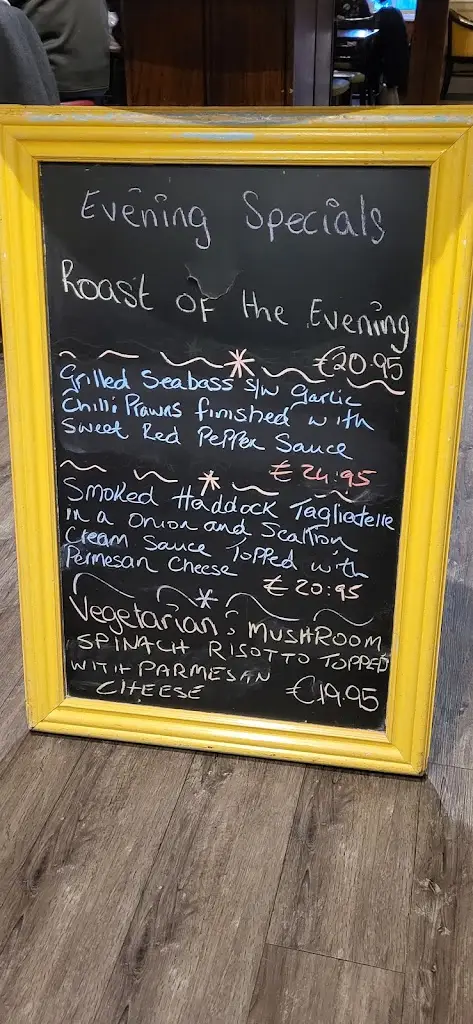 Evening Specials
Roast OF the Evening
€20.95
Grilled Seabass s/w Garlic
Chilli Prawns finished with
Sweet Red Pepper Sauce
€24.95
Smoked Haddock Tagliatelle
in a Onion and Scallion
Cream Sauce Topped with
Permesan Cheese
€20.95
Vegetarian: MUSHROOM
SPINACH RISOTTO TOPPED
WITH PARMESAN
CHEESE €19.95